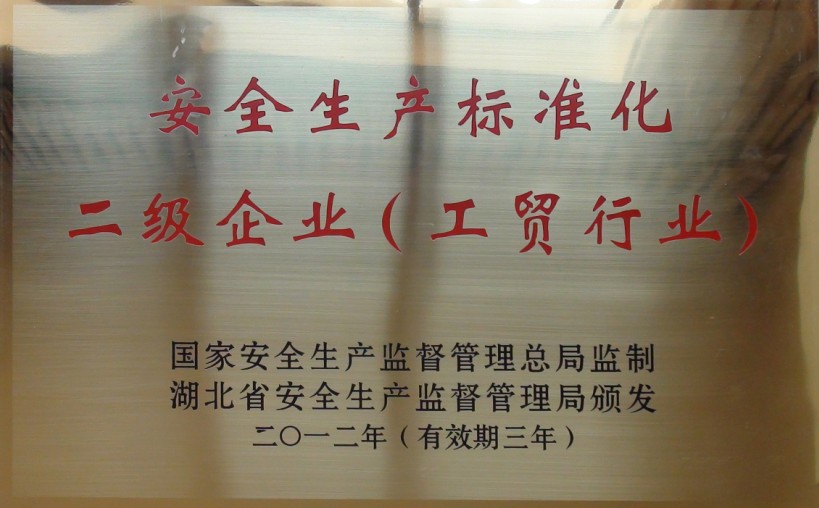 安全生产标准化
二级企业（工贸行业）
国家安全生产监督管理总局监制
湖北省安全生产监督管理局颁发
二〇一二年（有效期三年）